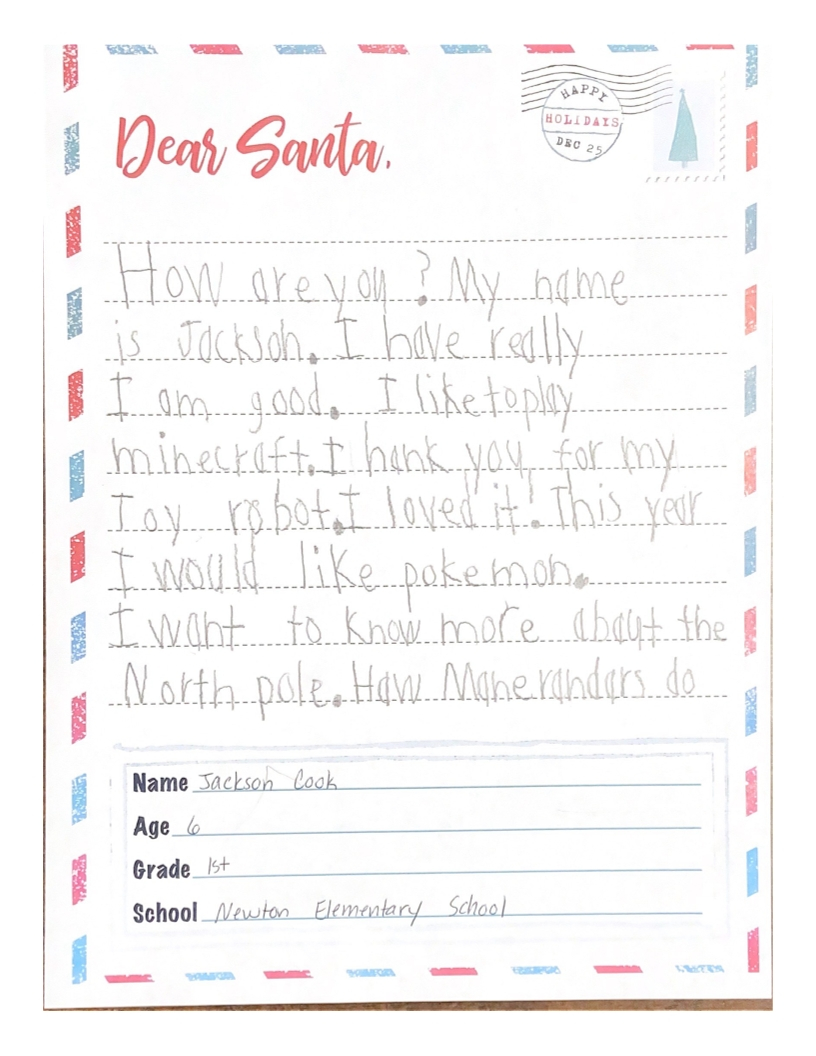 HAPPY
HOLIDAYS
DEC 25
Dear Santa,
How are you? My name
is Jackson. I have really
I am good. I like to play
minecraft. I hank you for my
Toy robot. I loved it! This year
I would like pokemon.
I want to know more abaut the
North pole. Haw Mane randars do
Name Jackson Cook
Age 6
Grade 1st
School Newton Elementary School